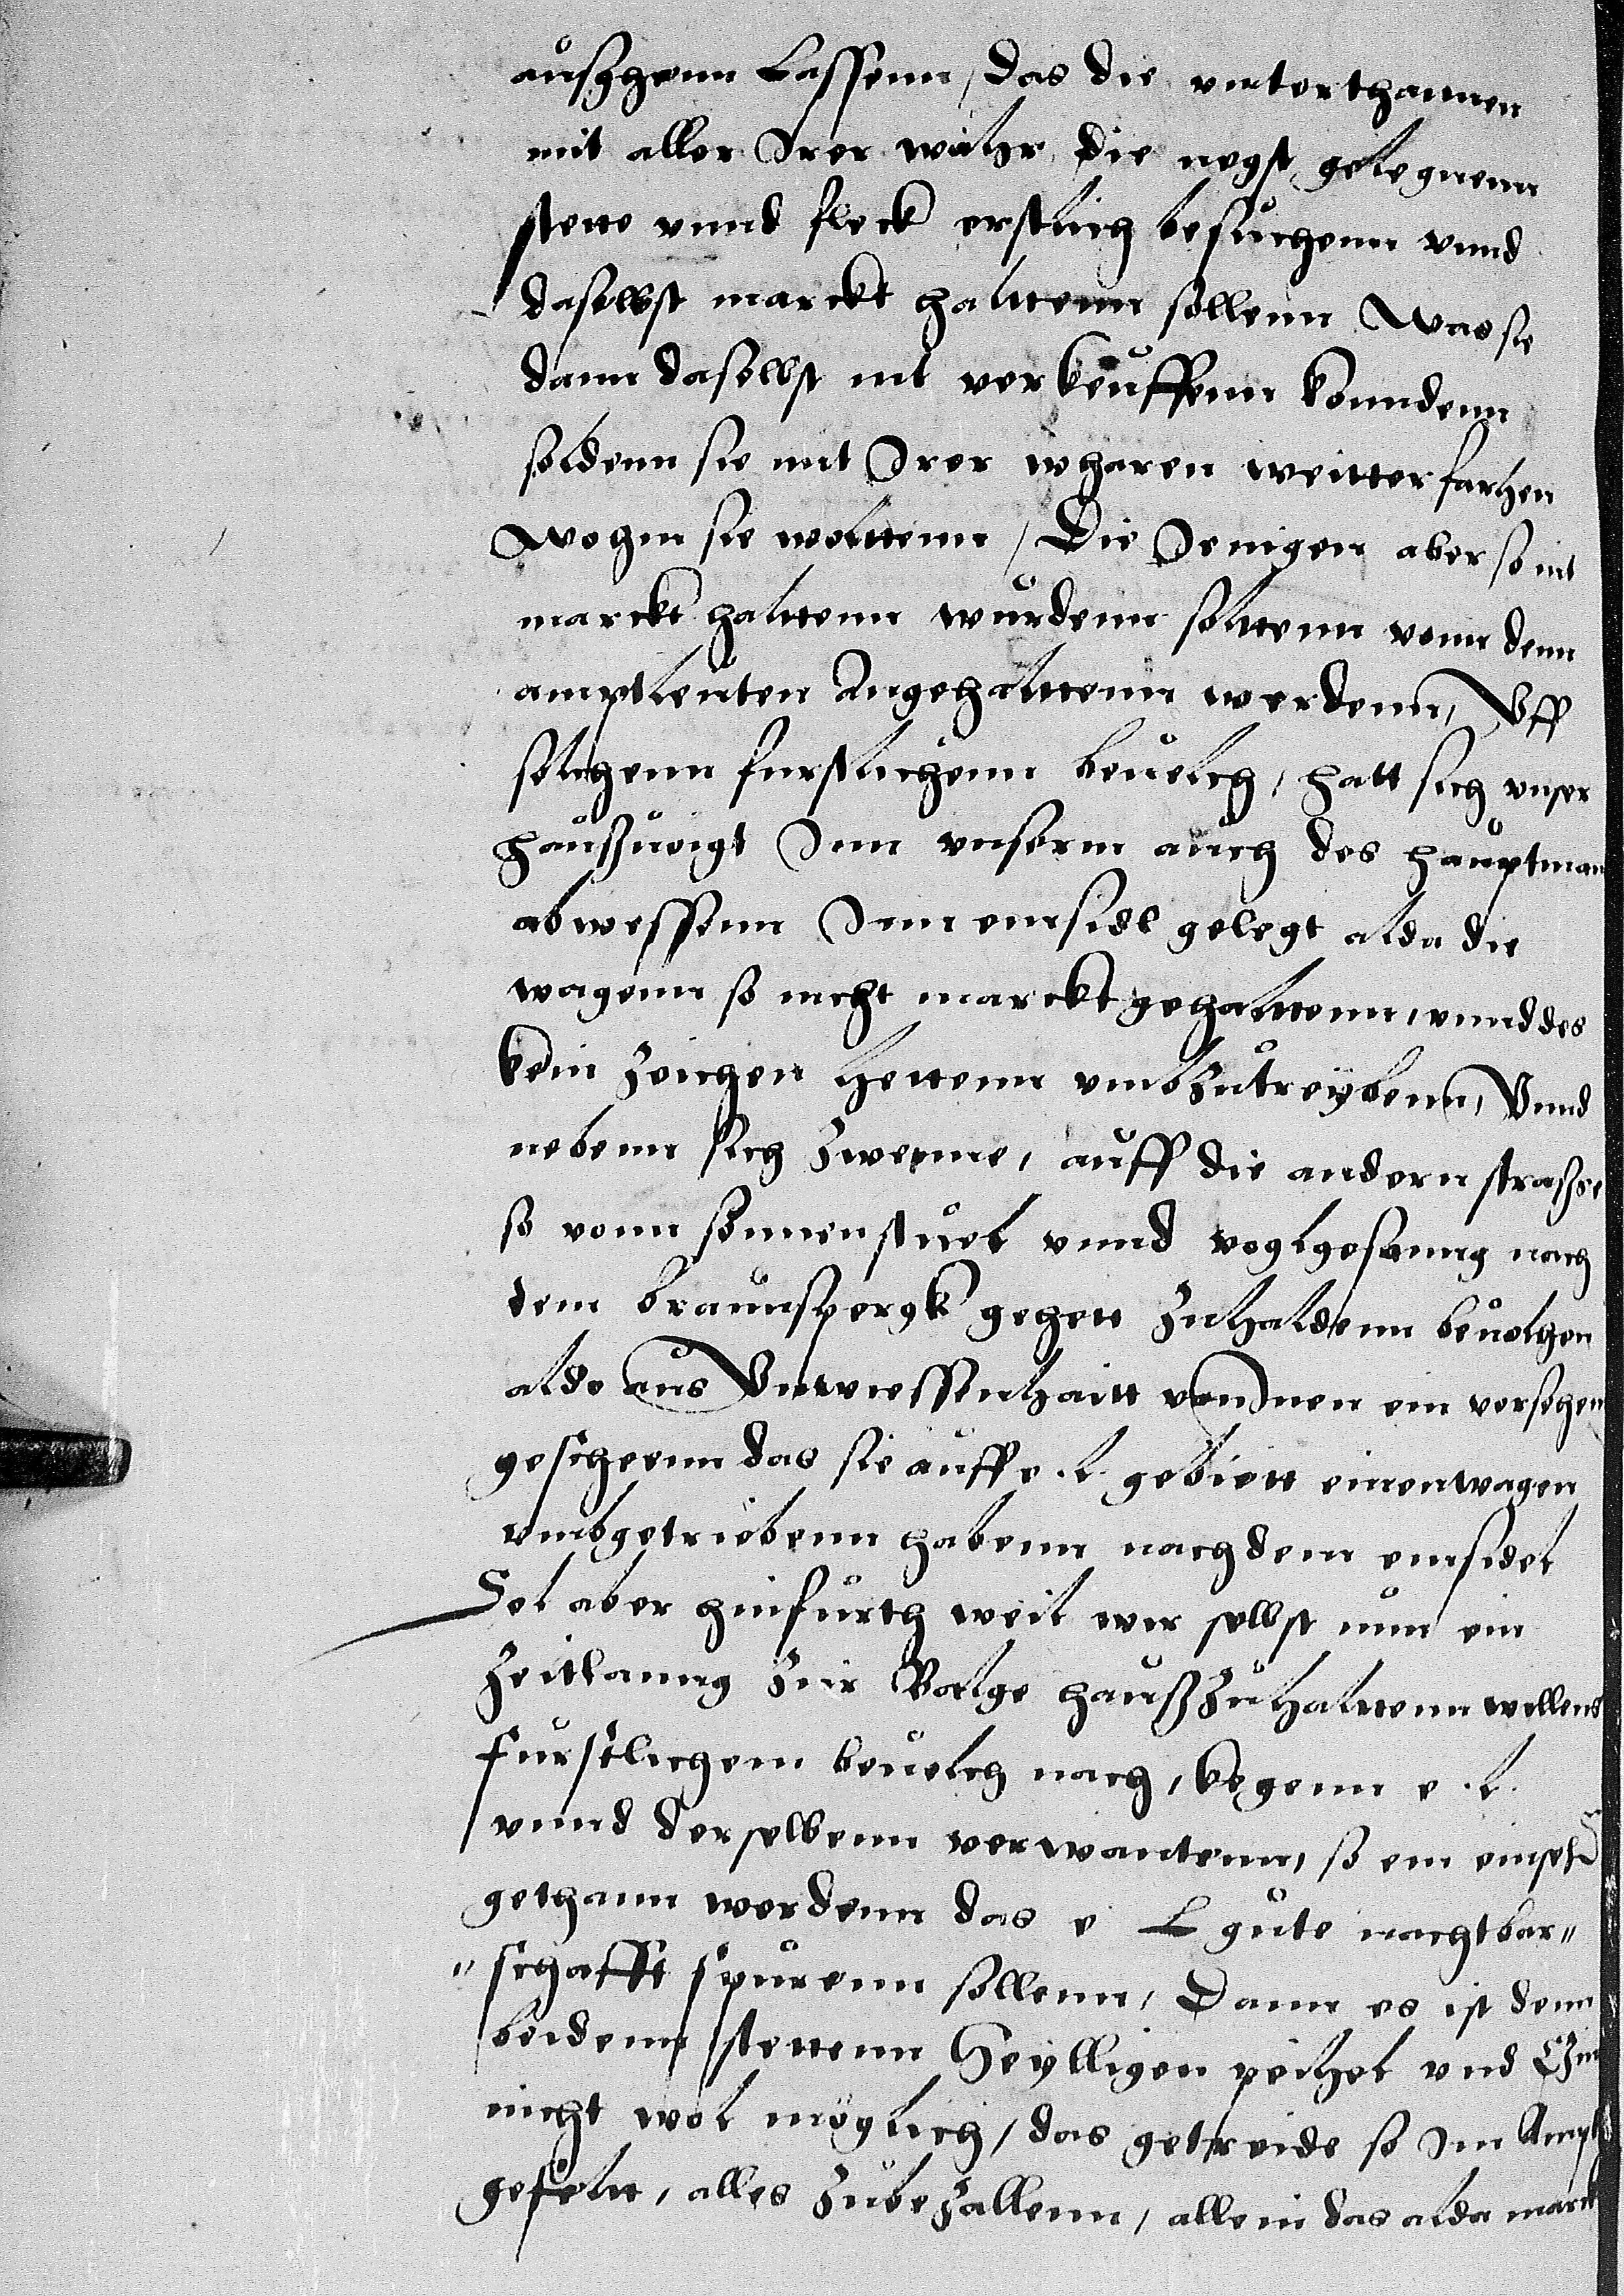 außghenn Lassenn, das die vntterthannen
mit aller Irer wahr, die negst gelegnenn
stette vnnd fleck erstlich besuchenn vnnd
daselbst marckt halttenn sollenn Was sie
dann daselbst nit verkeuffenn konndenn
soldenn sie mit Irer wharen weitter farhen
Wohyn sie wolttenn / Die Jenigen aber so nit
marckt halttenn wurdenn solttenn vonn denn
amptleuten Angehalttenn werdenn, Vff
solchenn furstlichenn beuelch, hatt sich vnser
haußuoigt Inn vnserm auch des hauptman
abwessenn Inn einsidl gelegt alda die
wagenn so nicht marckt gehalttenn, vnnd des
kein Zeichen hettenn vmbzutreybenn, Vnnd
nebenn sich Zwenne, auff die andern straßse
so vonn sonnenstuel vnnd voglgesanng nach
dem braunspergk gehett Zuhaldenn beuolhen
aldo aus Vnwiessenhaitt von Inen ein versehen
gescheenn das sie auff e. l. gebiett einen wagen
vmbgetriebenn habenn nach dem einsidel
Sol aber hinfurth weil wir selbst nun ein
Zeitlanng Zur Balge hauß Zuhalttenn willens
furstlichem beuelch nach, kegenn e. l.
vnnd derselbenn verwantenn, so ein einsehen
gethann werdenn das e L gute nachtbar"
"schafft spurenn sollenn, Dann es ist denn
beidenn stettenn Heylligenpeihel vnd
nicht wol möglich, das getreide so Im Ampt
gefelt, alles Zubezallenn, allein das alda marckt